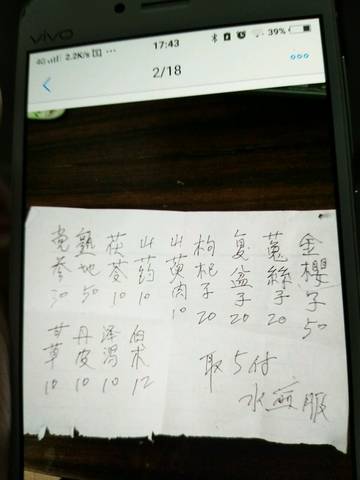 vivo
4G 2.2K/s 17:43 39%
2/18
党参 30
熟地 50
茯苓 10
山药 10
山萸肉 10
枸杞子 20
复盆子 20
菟絲子 20
金櫻子 50
甘草 10
丹皮 10
泽瀉 10
白术 12
取5付
水煎服